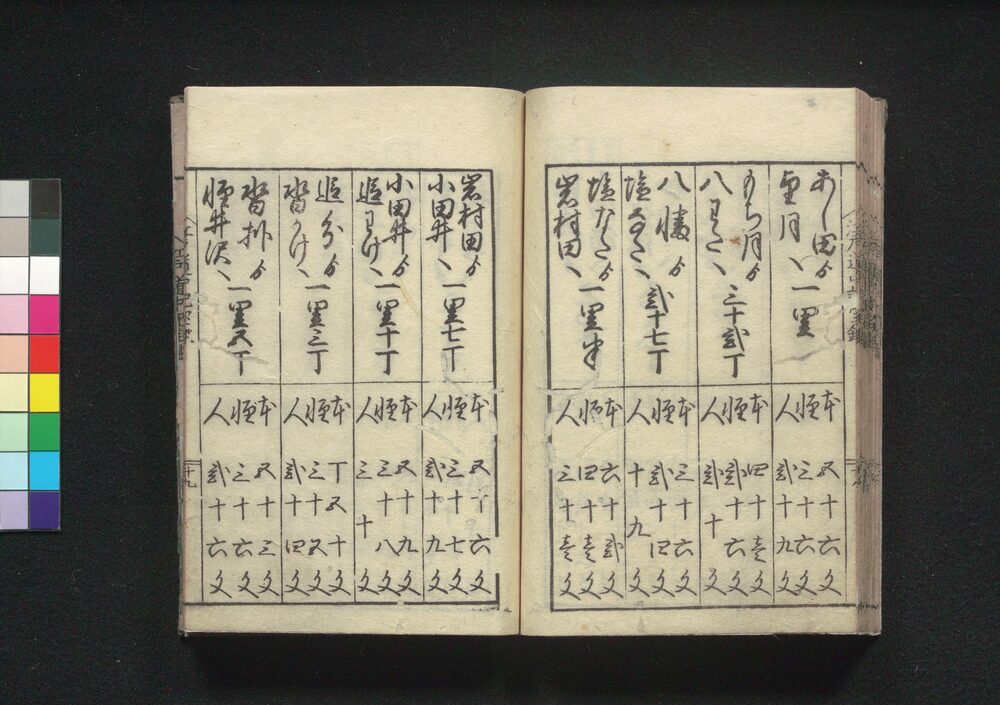 あし田ゟ
望月へ 一里
本 五十六文
軽 三十六文
人 弐十九文
もち月ゟ
八わたへ 三十弐丁
本 四十壱文
軽 弐十六文
人 弐十文
八幡ゟ
塩なたへ 弐十七丁
本 三十六文
軽 弐十四文
人 十九文
塩なたゟ
岩村田へ 一里半
本 六十弐文
軽 四十壱文
人 三十壱文
岩村田ゟ
小田井へ 一里七丁
本 五十六文
軽 三十七文
人 弐十九文
小田井ゟ
追わけへ 一里十丁
本 五十九文
軽 三十八文
人 三十文
追分ゟ
沓かけへ 一里三丁
本 丁五十文
軽 三十五文
人 弐十四文
沓掛ゟ
軽井沢へ 一里五丁
本 五十三文
軽 三十六文
人 弐十六文